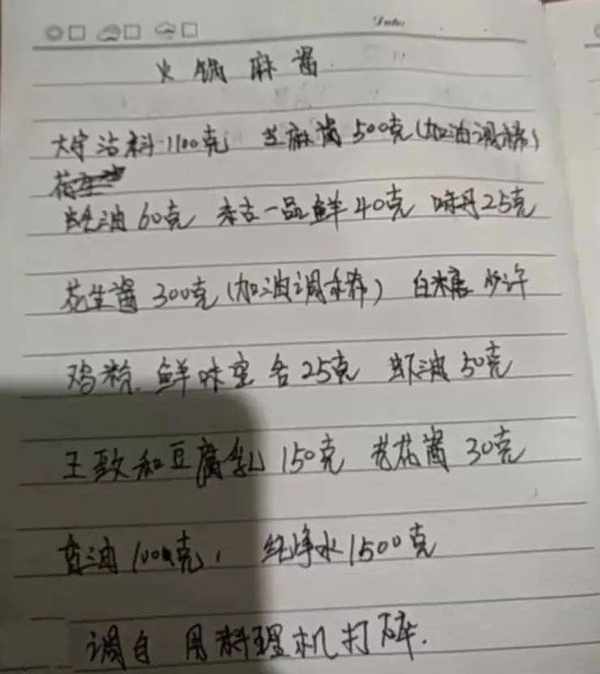 火锅麻酱
大宇沾料1100克 芝麻酱500克(加油调稀)
蚝油60克 东古一品鲜40克 味丹25克
花生酱300克(加油调稀) 白糖少许
鸡粉 鲜味宝各25克 虾油50克
王致和豆腐乳150克 韭花酱30克
香油100克, 纯净水1500克
用料理机打碎.